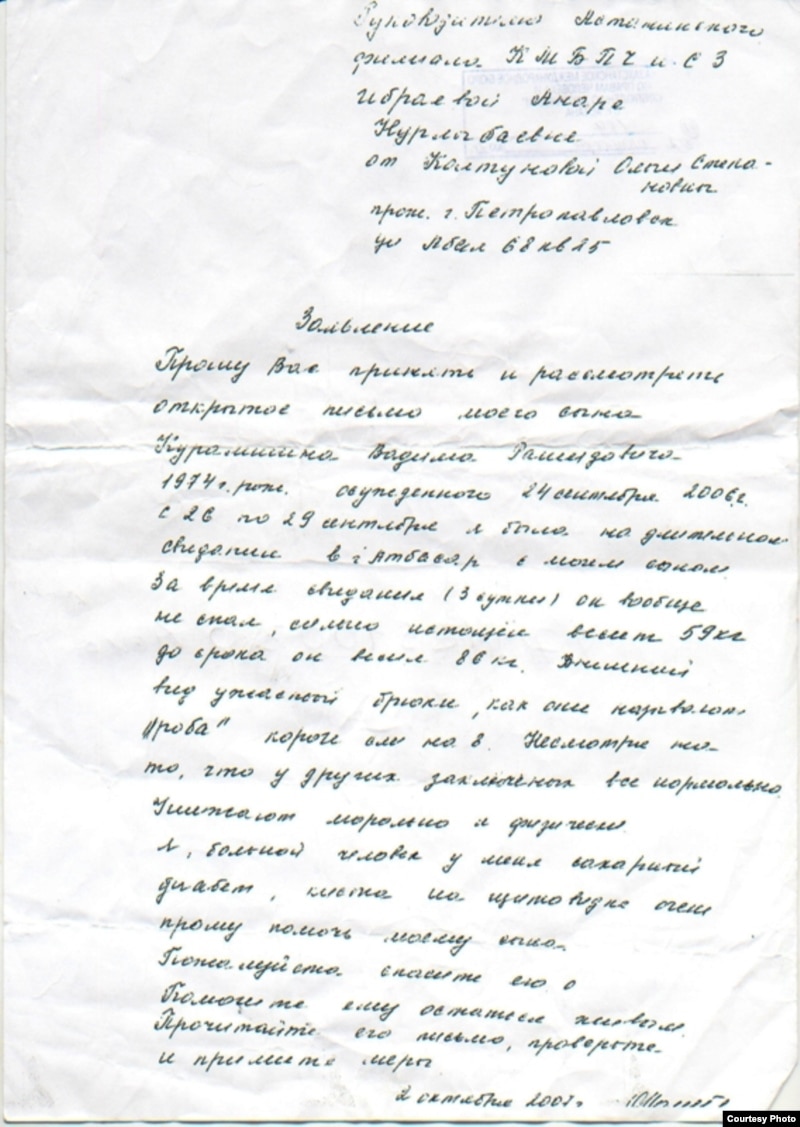 Руководителю Астанинского
филиала КМБПЧ и СЗ
Ибраевой Анаре
Нурлыбаевне
от Колтуновой Ольги Степа-
новны
прож. г. Петропавловск
ул Абая 68 кв 25
Заявление
Прошу Вас принять и рассмотреть
открытое письмо моего сына
Курамшина Вадима Рашидовича
1974г. рож. осужденного 24 сентября 2006г.
с 26 по 29 сентября я была на длительном
свидании в г Атбасар с моим сыном.
За время свидания (3 сутки) он вообще
не спал, сильно истощен весит 59 кг
до срока он весил 86 кг. Внешний
вид ужасный брюки, как они называют
"роба" короче см на 8. Несмотря на
то, что у других заключеных все нормально.
Унижают морально и физически.
Я, больной человек у меня сахарный
диабет, киста на щитовидке очень
прошу помочь моему сыну.
Пожалуйста спасите его
Помогите ему остаться живым.
Прочитайте его письмо, проверьте
и примите меры
2 октября 2007г
Courtesy Photo